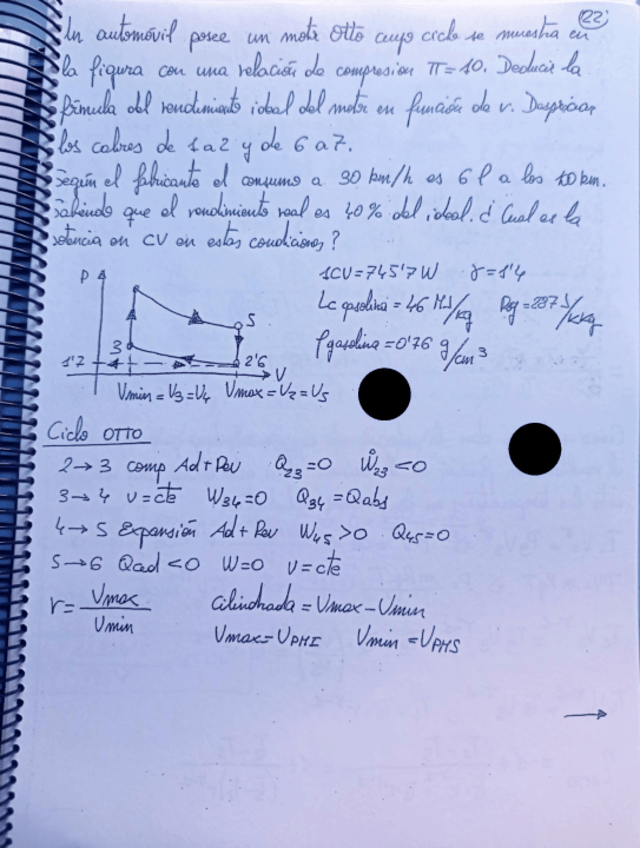 22
Un automóvil posee un motor Otto cuyo ciclo se muestra en
la figura con una relación de compresion π=10. Deducir la
fórmula del rendimiento ideal del motor en función de r. Despreciar
los calores de 1 a 2 y de 6 a 7.
Según el fabricante el consumo a 30 km/h es 6 l a los 100 km.
Sabiendo que el rendimiento real es 40% del ideal. ¿Cual es la
potencia en CV en estas condiciones?
1CV=745'7W γ=1'4
Lc gasolina = 46 MJ/kg Rg=287 J/kKg
ρ gasolina = 0'76 g/cm³
P
5
3
1'7
2'6
V
Vmin = V3=V4 Vmax = V2 = V5
Ciclo OTTO
2→3 comp Ad+Rev Q23=0 W23<0
3→4 v=cte W34=0 Q34=Qabs
4→5 Expansión Ad+Rev W45>0 Q45=0
5→6 Qad<0 W=0 v=cte
r= Vmax / Vmin Cilindrada = Vmax-Vmin
Vmax=VPMI Vmin=VPMS